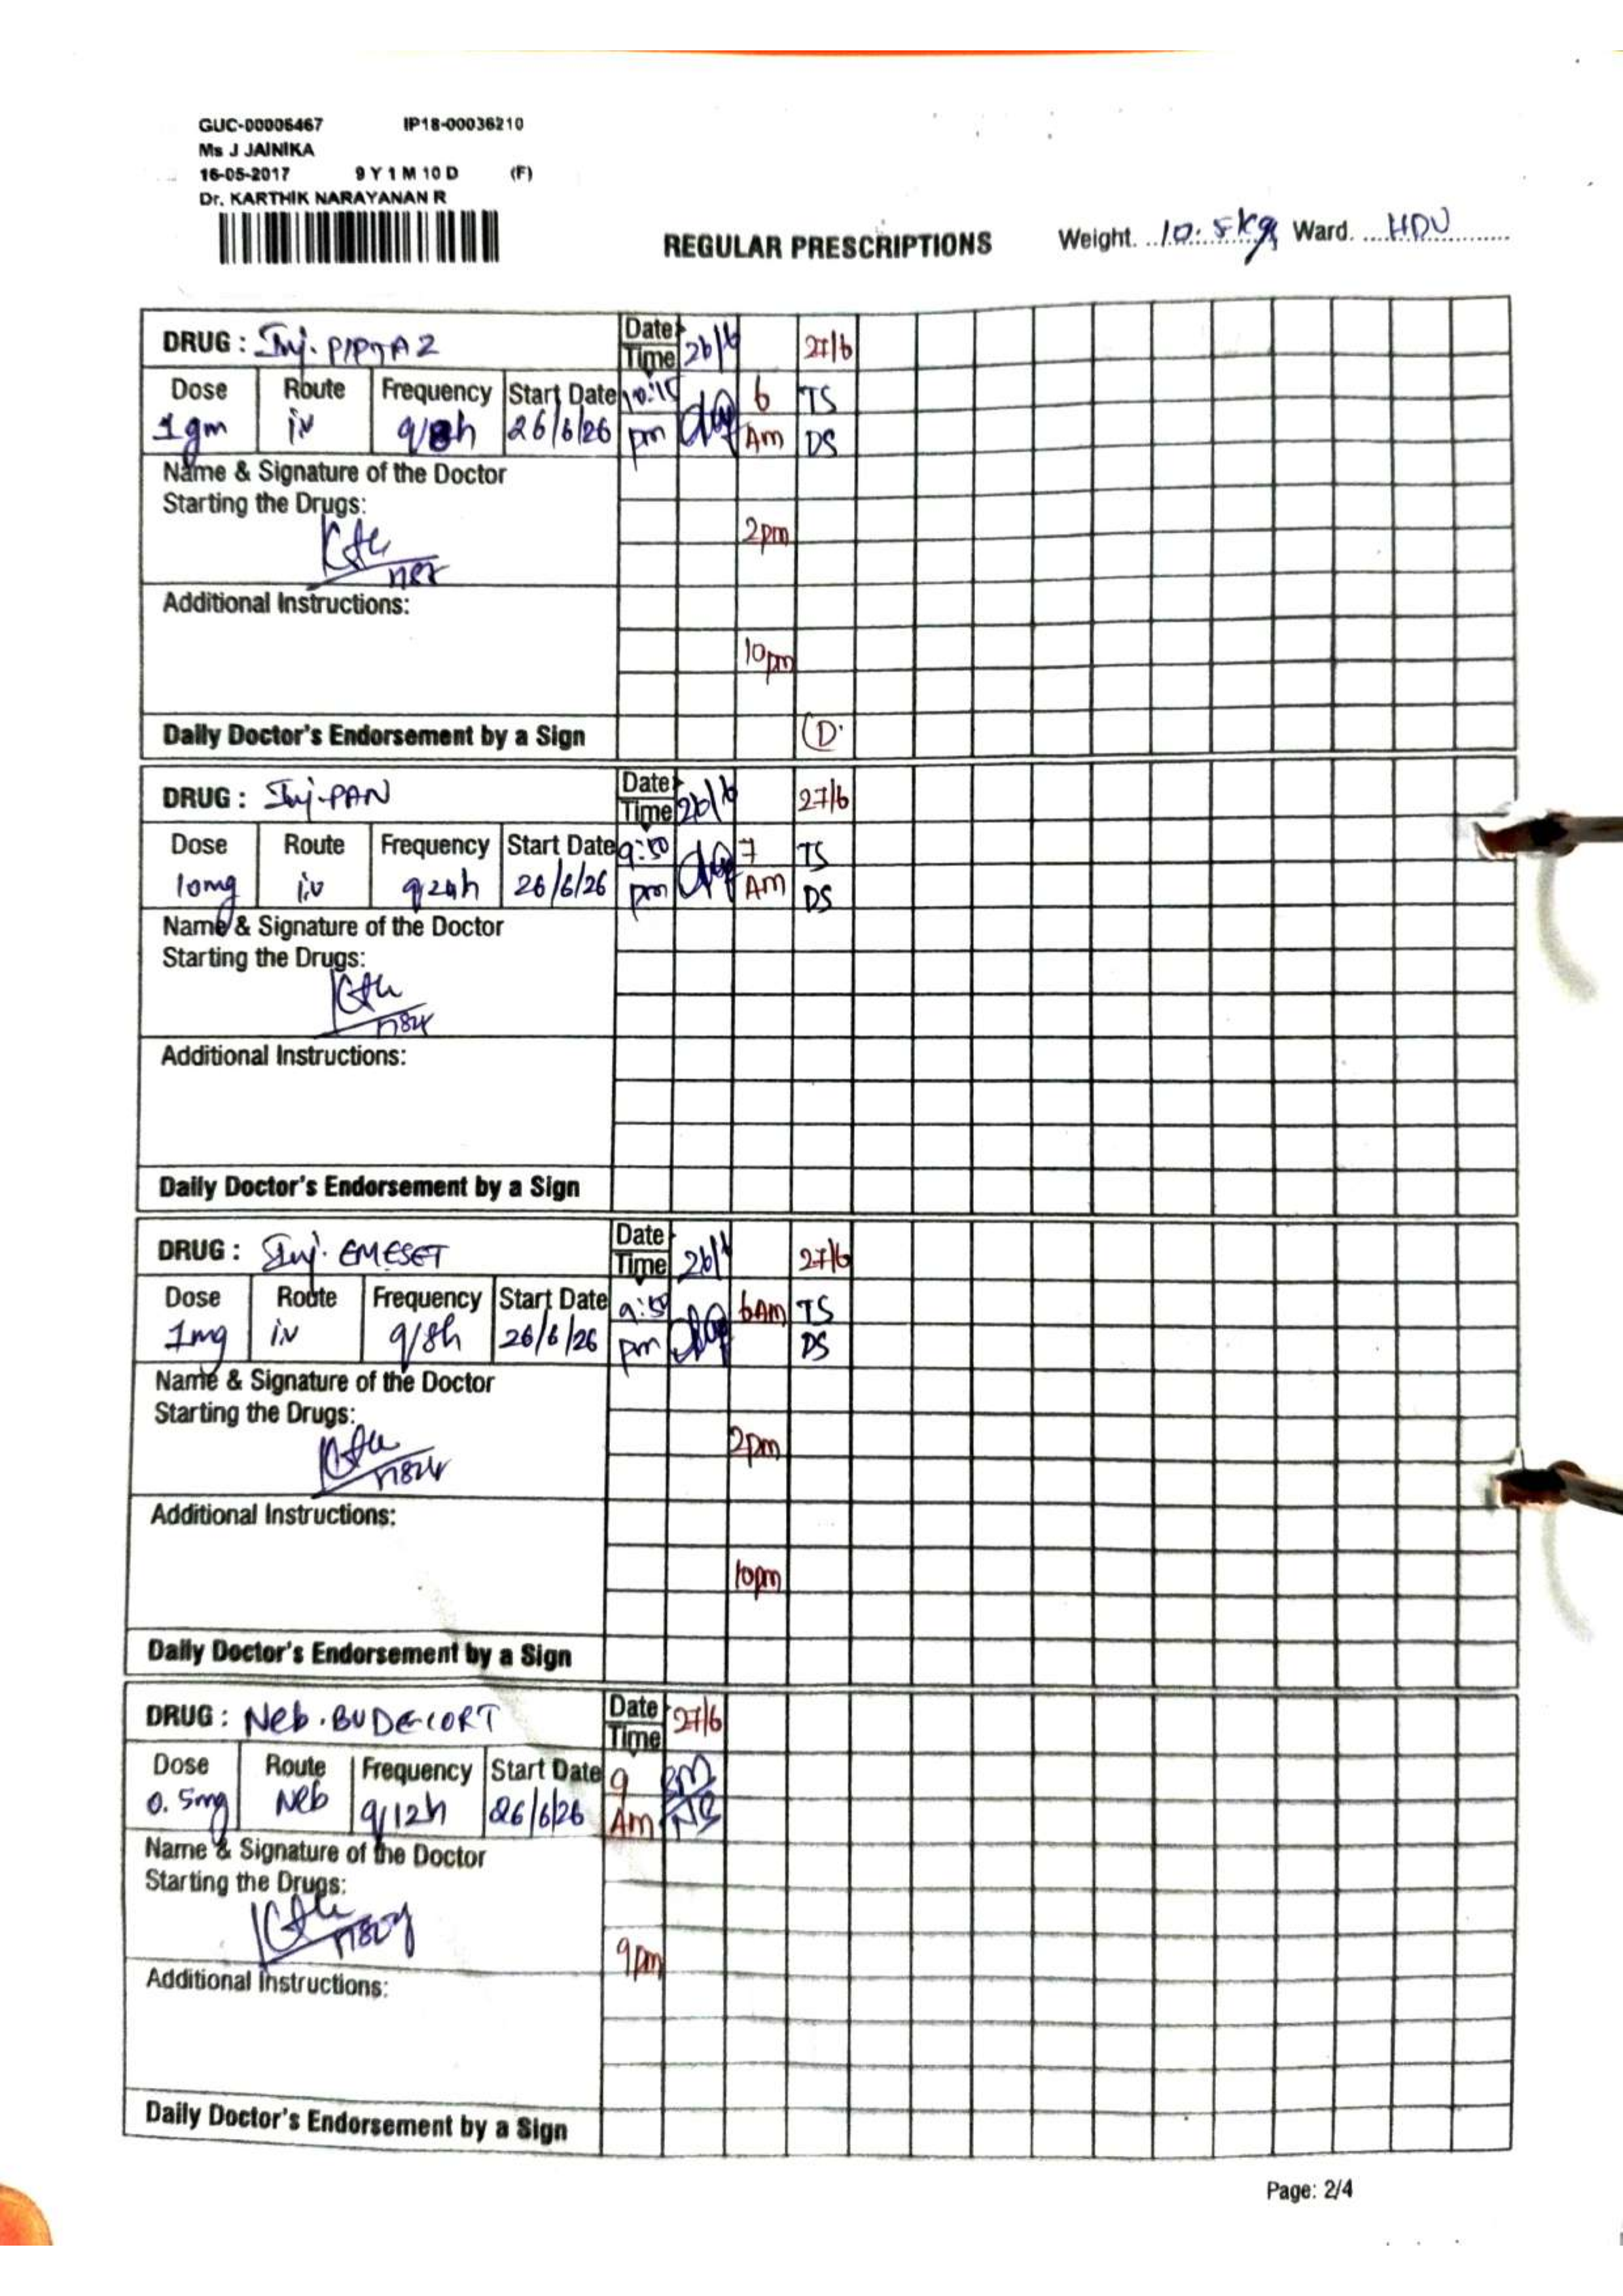 GUC-00006467 IP18-00036210
Ms J JAINIKA
16-05-2017 9 Y 1 M 10 D (F)
Dr. KARTHIK NARAYANAN R
REGULAR PRESCRIPTIONS Weight. 10.5kg Ward. HDU
DRUG : Inj. PIPTAZ Date 26/6 27/6
Time
Dose Route Frequency Start Date 10:15 6 TS
1gm iv q/8h 26/6/26 pm Am DS
Name & Signature of the Doctor
Starting the Drugs:
2pm
Additional Instructions:
10pm
Daily Doctor's Endorsement by a Sign D.
DRUG : Inj. PAN Date 26/6 27/6
Time
Dose Route Frequency Start Date 9:50 7 TS
10mg i.v q24h 26/6/26 pm Am DS
Name & Signature of the Doctor
Starting the Drugs:
Additional Instructions:
Daily Doctor's Endorsement by a Sign
DRUG : Inj. EMESET Date 26/6 27/6
Time
Dose Route Frequency Start Date 9:50 6AM TS
1mg iv q/8h 26/6/26 pm DS
Name & Signature of the Doctor
Starting the Drugs:
2pm
Additional Instructions:
10pm
Daily Doctor's Endorsement by a Sign
DRUG : Neb. BUDECORT Date 27/6
Time
Dose Route Frequency Start Date 9
0.5mg Neb q/12h 26/6/26 Am
Name & Signature of the Doctor
Starting the Drugs:
9pm
Additional Instructions:
Daily Doctor's Endorsement by a Sign
Page: 2/4